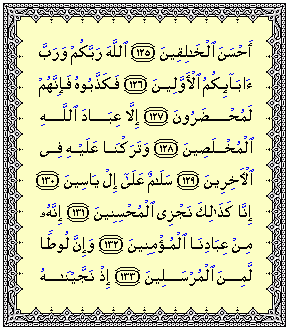 أَحْسَنَ ٱلْخَٰلِقِينَ ١٢٥ ٱللَّهَ رَبَّكُمْ وَرَبَّ
ءَابَآئِكُمُ ٱلْأَوَّلِينَ ١٢٦ فَكَذَّبُوهُ فَإِنَّهُمْ
لَمُحْضَرُونَ ١٢٧ إِلَّا عِبَادَ ٱللَّهِ
ٱلْمُخْلَصِينَ ١٢٨ وَتَرَكْنَا عَلَيْهِ فِى
ٱلْءَاخِرِينَ ١٢٩ سَلَٰمٌ عَلَىٰٓ إِلْ يَاسِينَ ١٣٠
إِنَّا كَذَٰلِكَ نَجْزِى ٱلْمُحْسِنِينَ ١٣١ إِنَّهُۥ
مِنْ عِبَادِنَا ٱلْمُؤْمِنِينَ ١٣٢ وَإِنَّ لُوطًا
لَّمِنَ ٱلْمُرْسَلِينَ ١٣٣ إِذْ نَجَّيْنَٰهُ